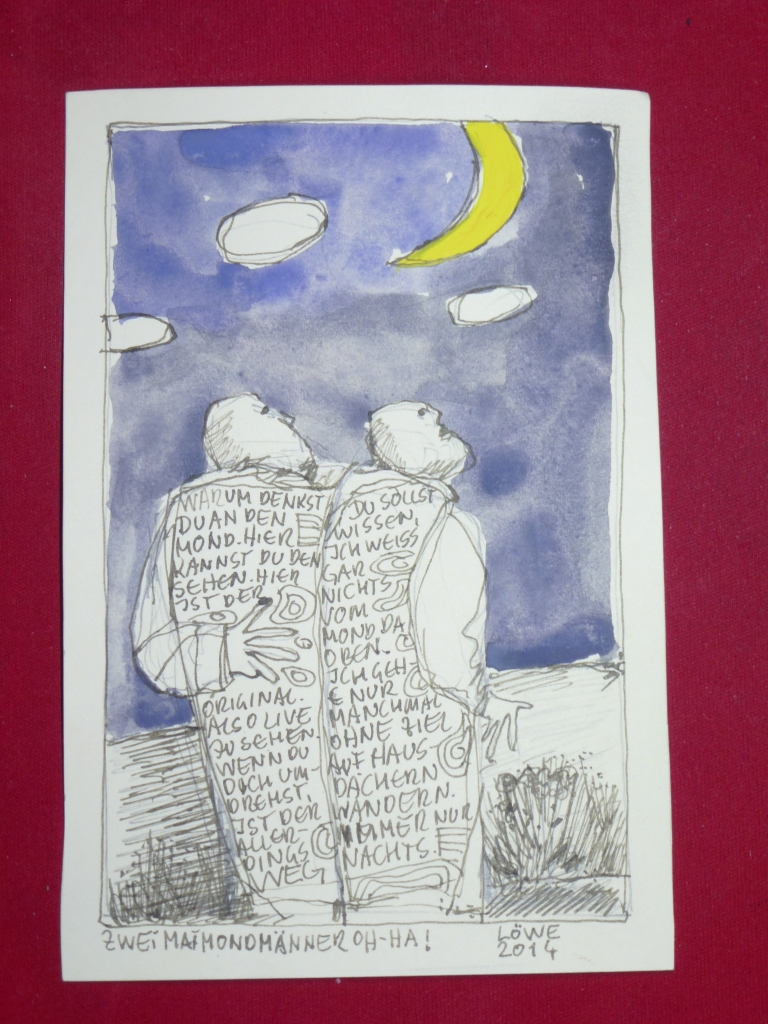 WARUM DENKST
DU AN DEN
MOND. HIER
KANNST DU DEN
SEHEN. HIER
IST DER
ORIGINAL.
ALSO LIVE
ZU SEHEN.
WENN DU
DICH UM-
DREHST
IST DER
ALLER-
DINGS
WEG
DU SOLLST
WISSEN,
ICH WEISS
GAR
NICHTS
VOM
MOND DA
OBEN.
ICH GEH-
E NUR
MANCHMAL
OHNE ZIEL
AUF HAUS-
DÄCHERN
WANDERN.
IMMER NUR
NACHTS.
ZWEI MAIMONDMÄNNER OH-HA!
LÖWE
2014